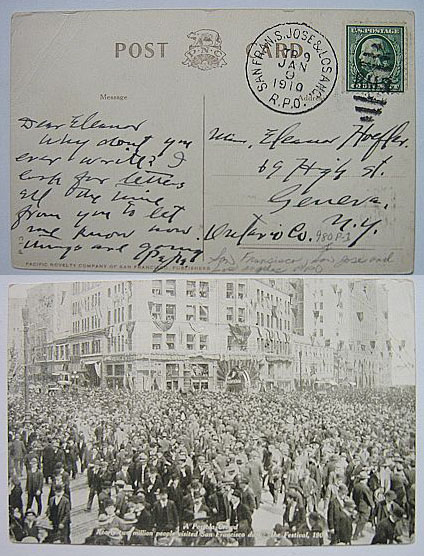 POST CARD
SAN FRAN, S. JOSE & LOS ANG.
JAN
9
1910
R.P.O.
U.S. POSTAGE
Message
Address
Dear Eleanor
Why don't you
ever write? I
look for letters
all the time
from you to let
me know how
things are going
Papa
Miss Eleanor Hoeffler
69 High St.
Geneva
N.Y.
Ontario Co.
980-P-1
San Francisco, San Jose and
Los Angeles RPO
PACIFIC NOVELTY COMPANY OF SAN FRANCISCO, PUBLISHERS
A Portola Crowd
Nearly two million people visited San Francisco during the Festival, 1909.